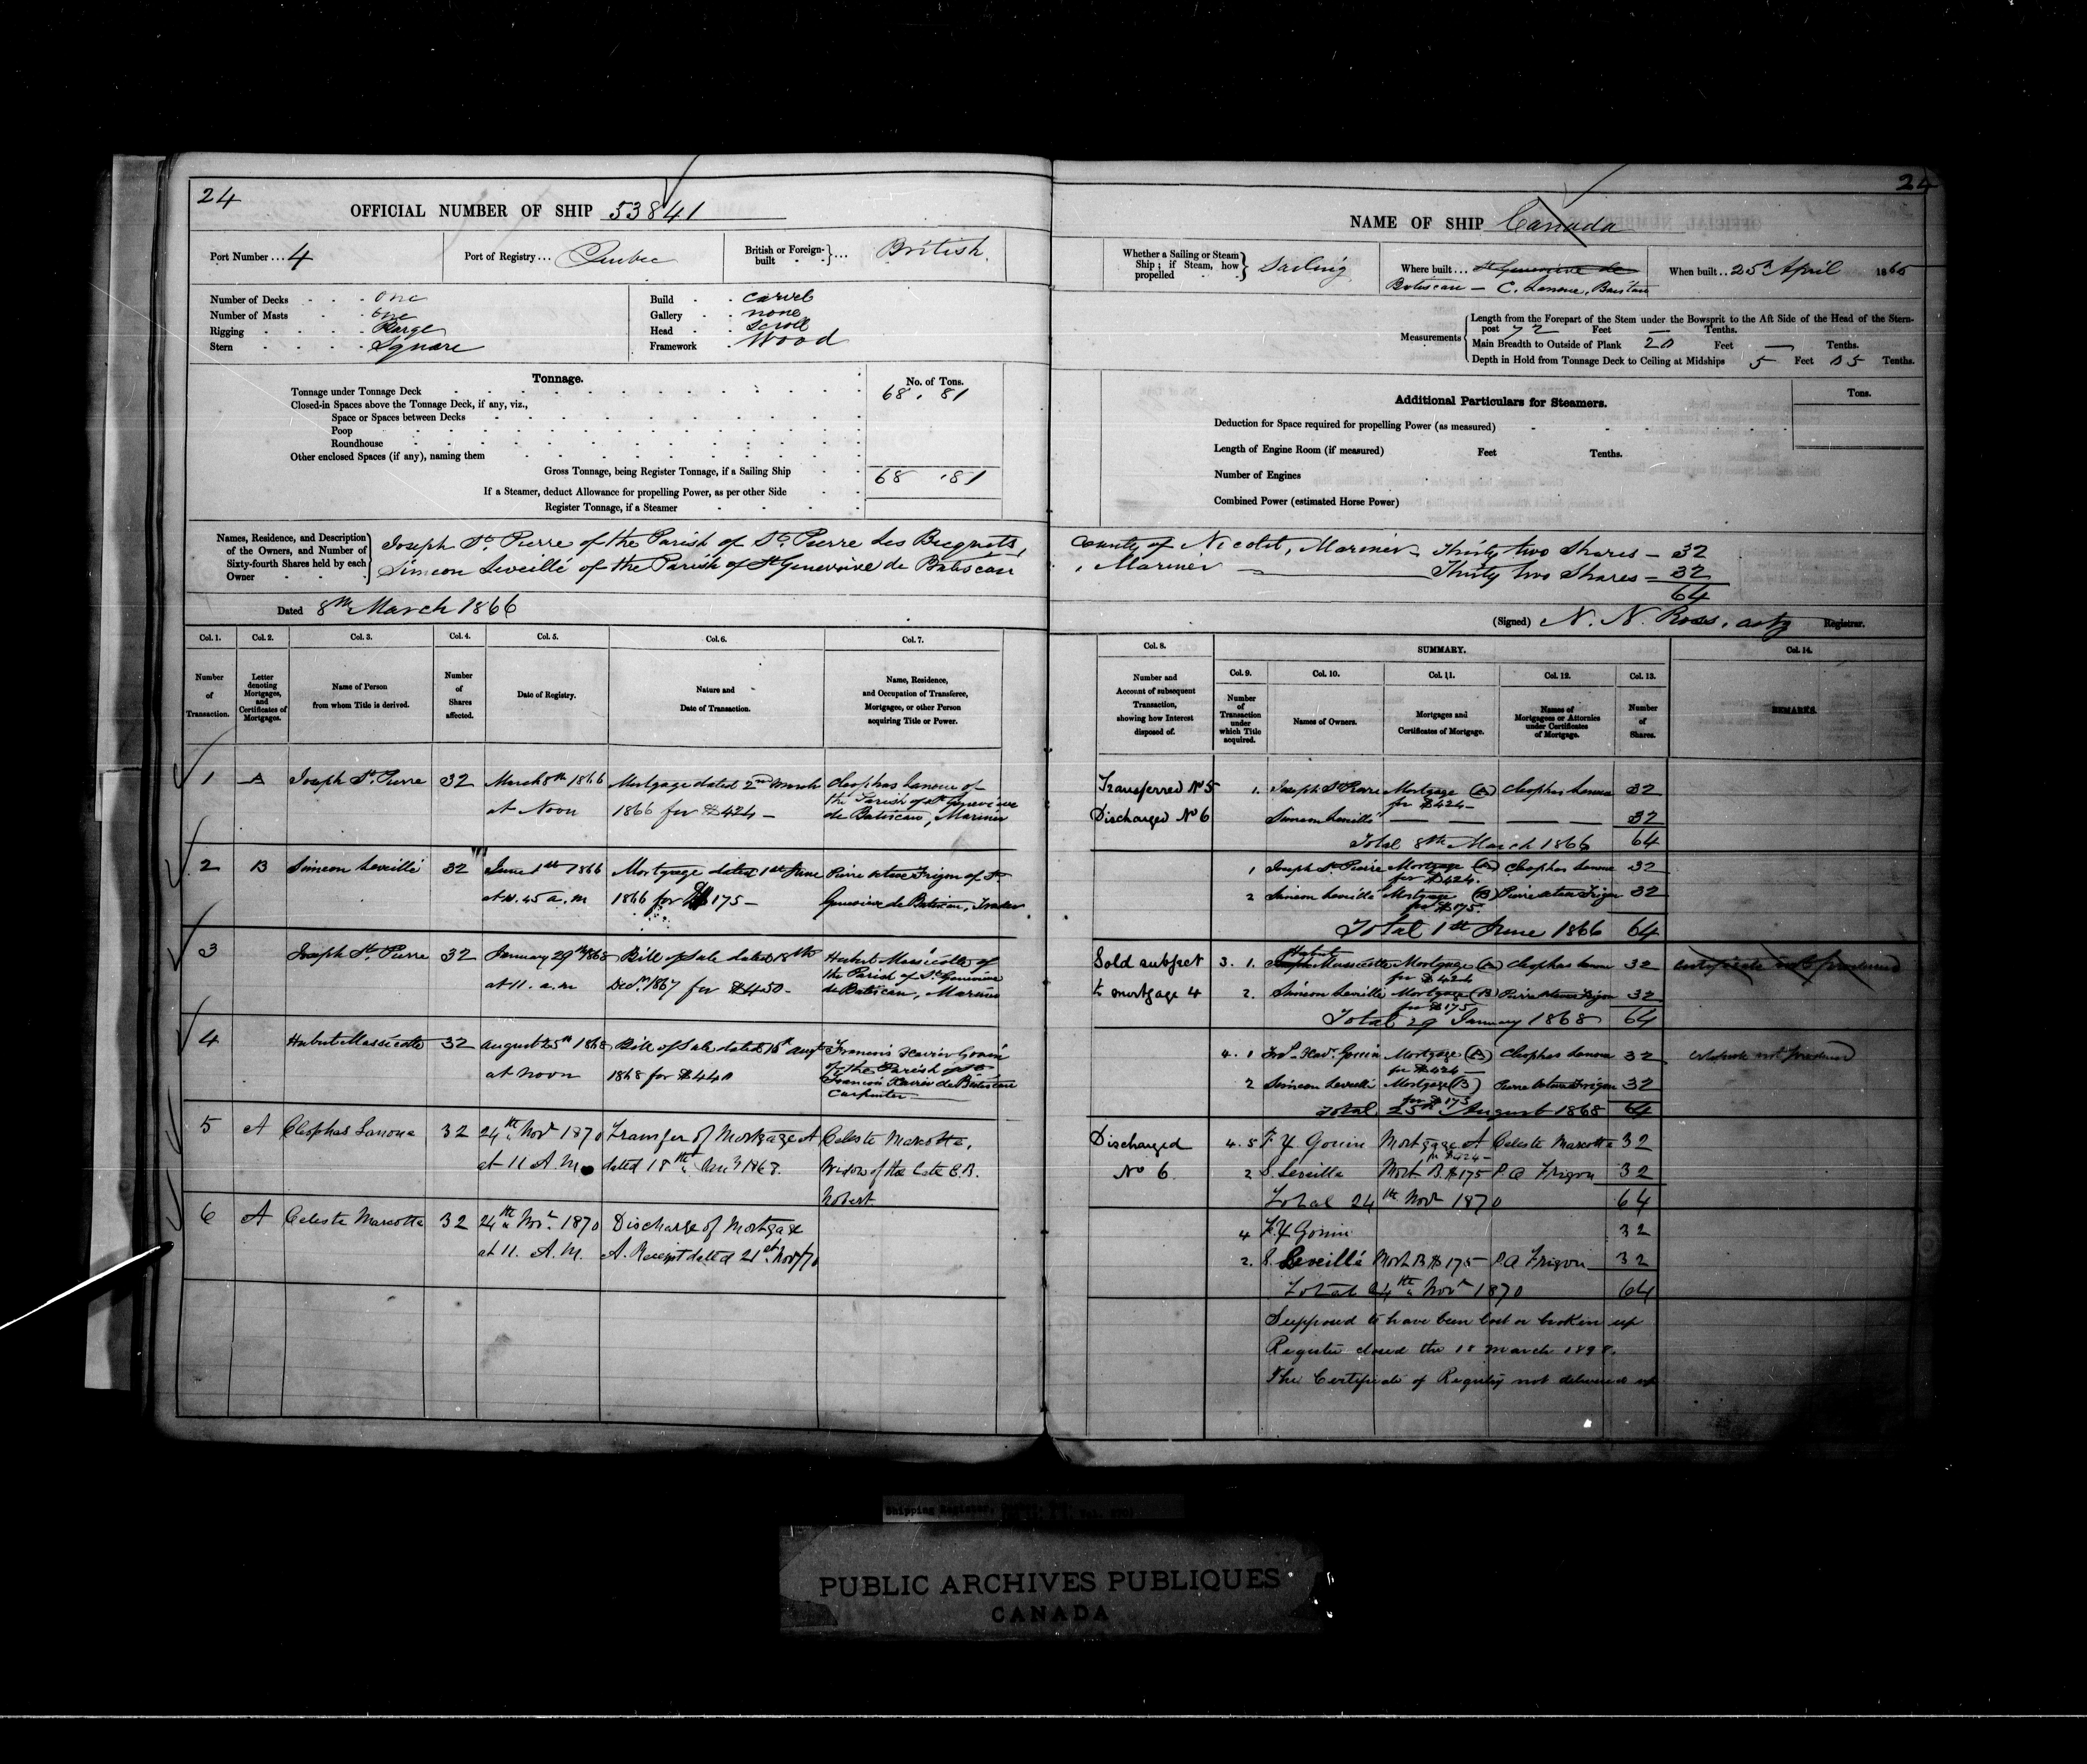 24
OFFICIAL NUMBER OF SHIP 53841
Port Number ... 4
Port of Registry ... Quebec
British or Foreign-built ... British.
Number of Decks one
Number of Masts one
Rigging Barge
Stern Square
Build carvel
Gallery none
Head Scroll
Framework Wood
Tonnage.
No. of Tons.
Tonnage under Tonnage Deck 68 . 81
Closed-in Spaces above the Tonnage Deck, if any, viz.,
Space or Spaces between Decks
Poop
Roundhouse
Other enclosed Spaces (if any), naming them
Gross Tonnage, being Register Tonnage, if a Sailing Ship 68 .81
If a Steamer, deduct Allowance for propelling Power, as per other Side
Register Tonnage, if a Steamer
Names, Residence, and Description of the Owners, and Number of Sixty-fourth Shares held by each Owner
Joseph St. Pierre of the Parish of St. Pierre Les Becquets,
Simeon Leveillé of the Parish of St Genevieve de Batiscan
Dated 8th March 1866
Col. 1. Col. 2. Col. 3. Col. 4. Col. 5. Col. 6. Col. 7.
Number of Transaction.
Letter denoting Mortgages, and Certificates of Mortgages.
Name of Person from whom Title is derived.
Number of Shares affected.
Date of Registry.
Nature and Date of Transaction.
Name, Residence, and Occupation of Transferee, Mortgagee, or other Person acquiring Title or Power.
1 A Joseph St. Pierre 32 March 8th 1866 Mortgage dated 2nd March Cleophas Lanoue of
at Noon 1866 for $424 — the Parish of St. Genevieve
de Batiscan, Mariner
2 B Simeon Leveillé 32 June 1st 1866 Mortgage dated 1st June Pierre Frigon of St.
at 11.45 a.m 1866 for $175 — Genevieve de Batiscan, Trader
3 Joseph St. Pierre 32 January 29th 1868 Bill of Sale dated 18th Hubert Massicotte of
at 11. a.m Decr. 1867 for $450 - the Parish of St. Genevieve
de Batiscan, Mariner
4 Hubert Massicotte 32 August 25th 1868 Bill of Sale dated 15th Augt Francois Xavier Gouin
at noon 1868 for $440 of the Parish of St
Francois Xavier de Batiscan
Carpenter
5 A Cleophas Lanoue 32 24th Novr 1870 Transfer of Mortgage A Celeste Marcotte,
at 11 A.M. dated 18th 1868. Widow of the late
Nobert
6 A Celeste Marcotte 32 24th Novr. 1870 Discharge of Mortgage
at 11. A.M. A. Receipt dated 21st Nov/70
24
NAME OF SHIP Canada
Whether a Sailing or Steam Ship; if Steam, how propelled Sailing
Where built ... St Genevieve de
Batiscan — C. Lanoue,
When built .. 25th April 1865
Measurements
Length from the Forepart of the Stem under the Bowsprit to the Aft Side of the Head of the Stern-
post 72 Feet — Tenths.
Main Breadth to Outside of Plank 20 Feet — Tenths.
Depth in Hold from Tonnage Deck to Ceiling at Midships 5 Feet 05 Tenths.
Additional Particulars for Steamers.
Tons.
Deduction for Space required for propelling Power (as measured)
Length of Engine Room (if measured) Feet Tenths.
Number of Engines
Combined Power (estimated Horse Power)
County of Nicolet, Mariner — Thirty two Shares — 32
, Mariner — Thirty two Shares — 32
64
(Signed) N. N. Ross, actg Registrar.
Col. 8. SUMMARY. Col. 14.
Col. 9. Col. 10. Col. 11. Col. 12. Col. 13.
Number and Account of subsequent Transaction, showing how Interest disposed of.
Number of Transaction under which Title acquired.
Names of Owners.
Mortgages and Certificates of Mortgage.
Names of Mortgagees or Attornies under Certificates of Mortgage.
Number of Shares.
REMARKS.
Transferred No 5 1. Joseph St Pierre Mortgage (A) Cleophas Lanoue 32
for $424 —
Discharged No 6 Simeon Leveillé — — — — 32
Total 8th March 1866 64
1 Joseph St Pierre Mortgage (A) Cleophas Lanoue 32
for $424.
2 Simeon Leveillé Mortgage (B) Pierre Frigon 32
for $175.
Total 1st June 1866 64
Sold subject 3. 1. Hubert Massicotte Mortgage (A) Cleophas Lanoue 32 Certificate not produced
for $424
to mortgage 4 2. Simeon Leveillé Mortgage (B) Pierre Frigon 32
for $175
Total 29 January 1868 64
4. 1 Frs. Xavr. Gouin Mortgage (A) Cleophas Lanoue 32 certificate not produced
for $424 —
2 Simeon Leveillé Mortgage (B) Pierre Frigon 32
for $175
Total 25th August 1868 64
Discharged 4. 5 F. X Gouin Mortgage A Celeste Marcotte 32
for $424 —
No 6 2 S. Leveille Mort. B. $175 P. A Frigon 32
Total 24th Novr 1870 64
4 F. X Gouin 32
2. S. Leveillé Mort. B $175 — P. A Frigon 32
Total 24th Novr 1870 64
Supposed to have been lost or broken up
Register closed the 18 March 1898.
The Certificate of Registry not delivered up
Shipping Register,
PUBLIC ARCHIVES PUBLIQUES
CANADA